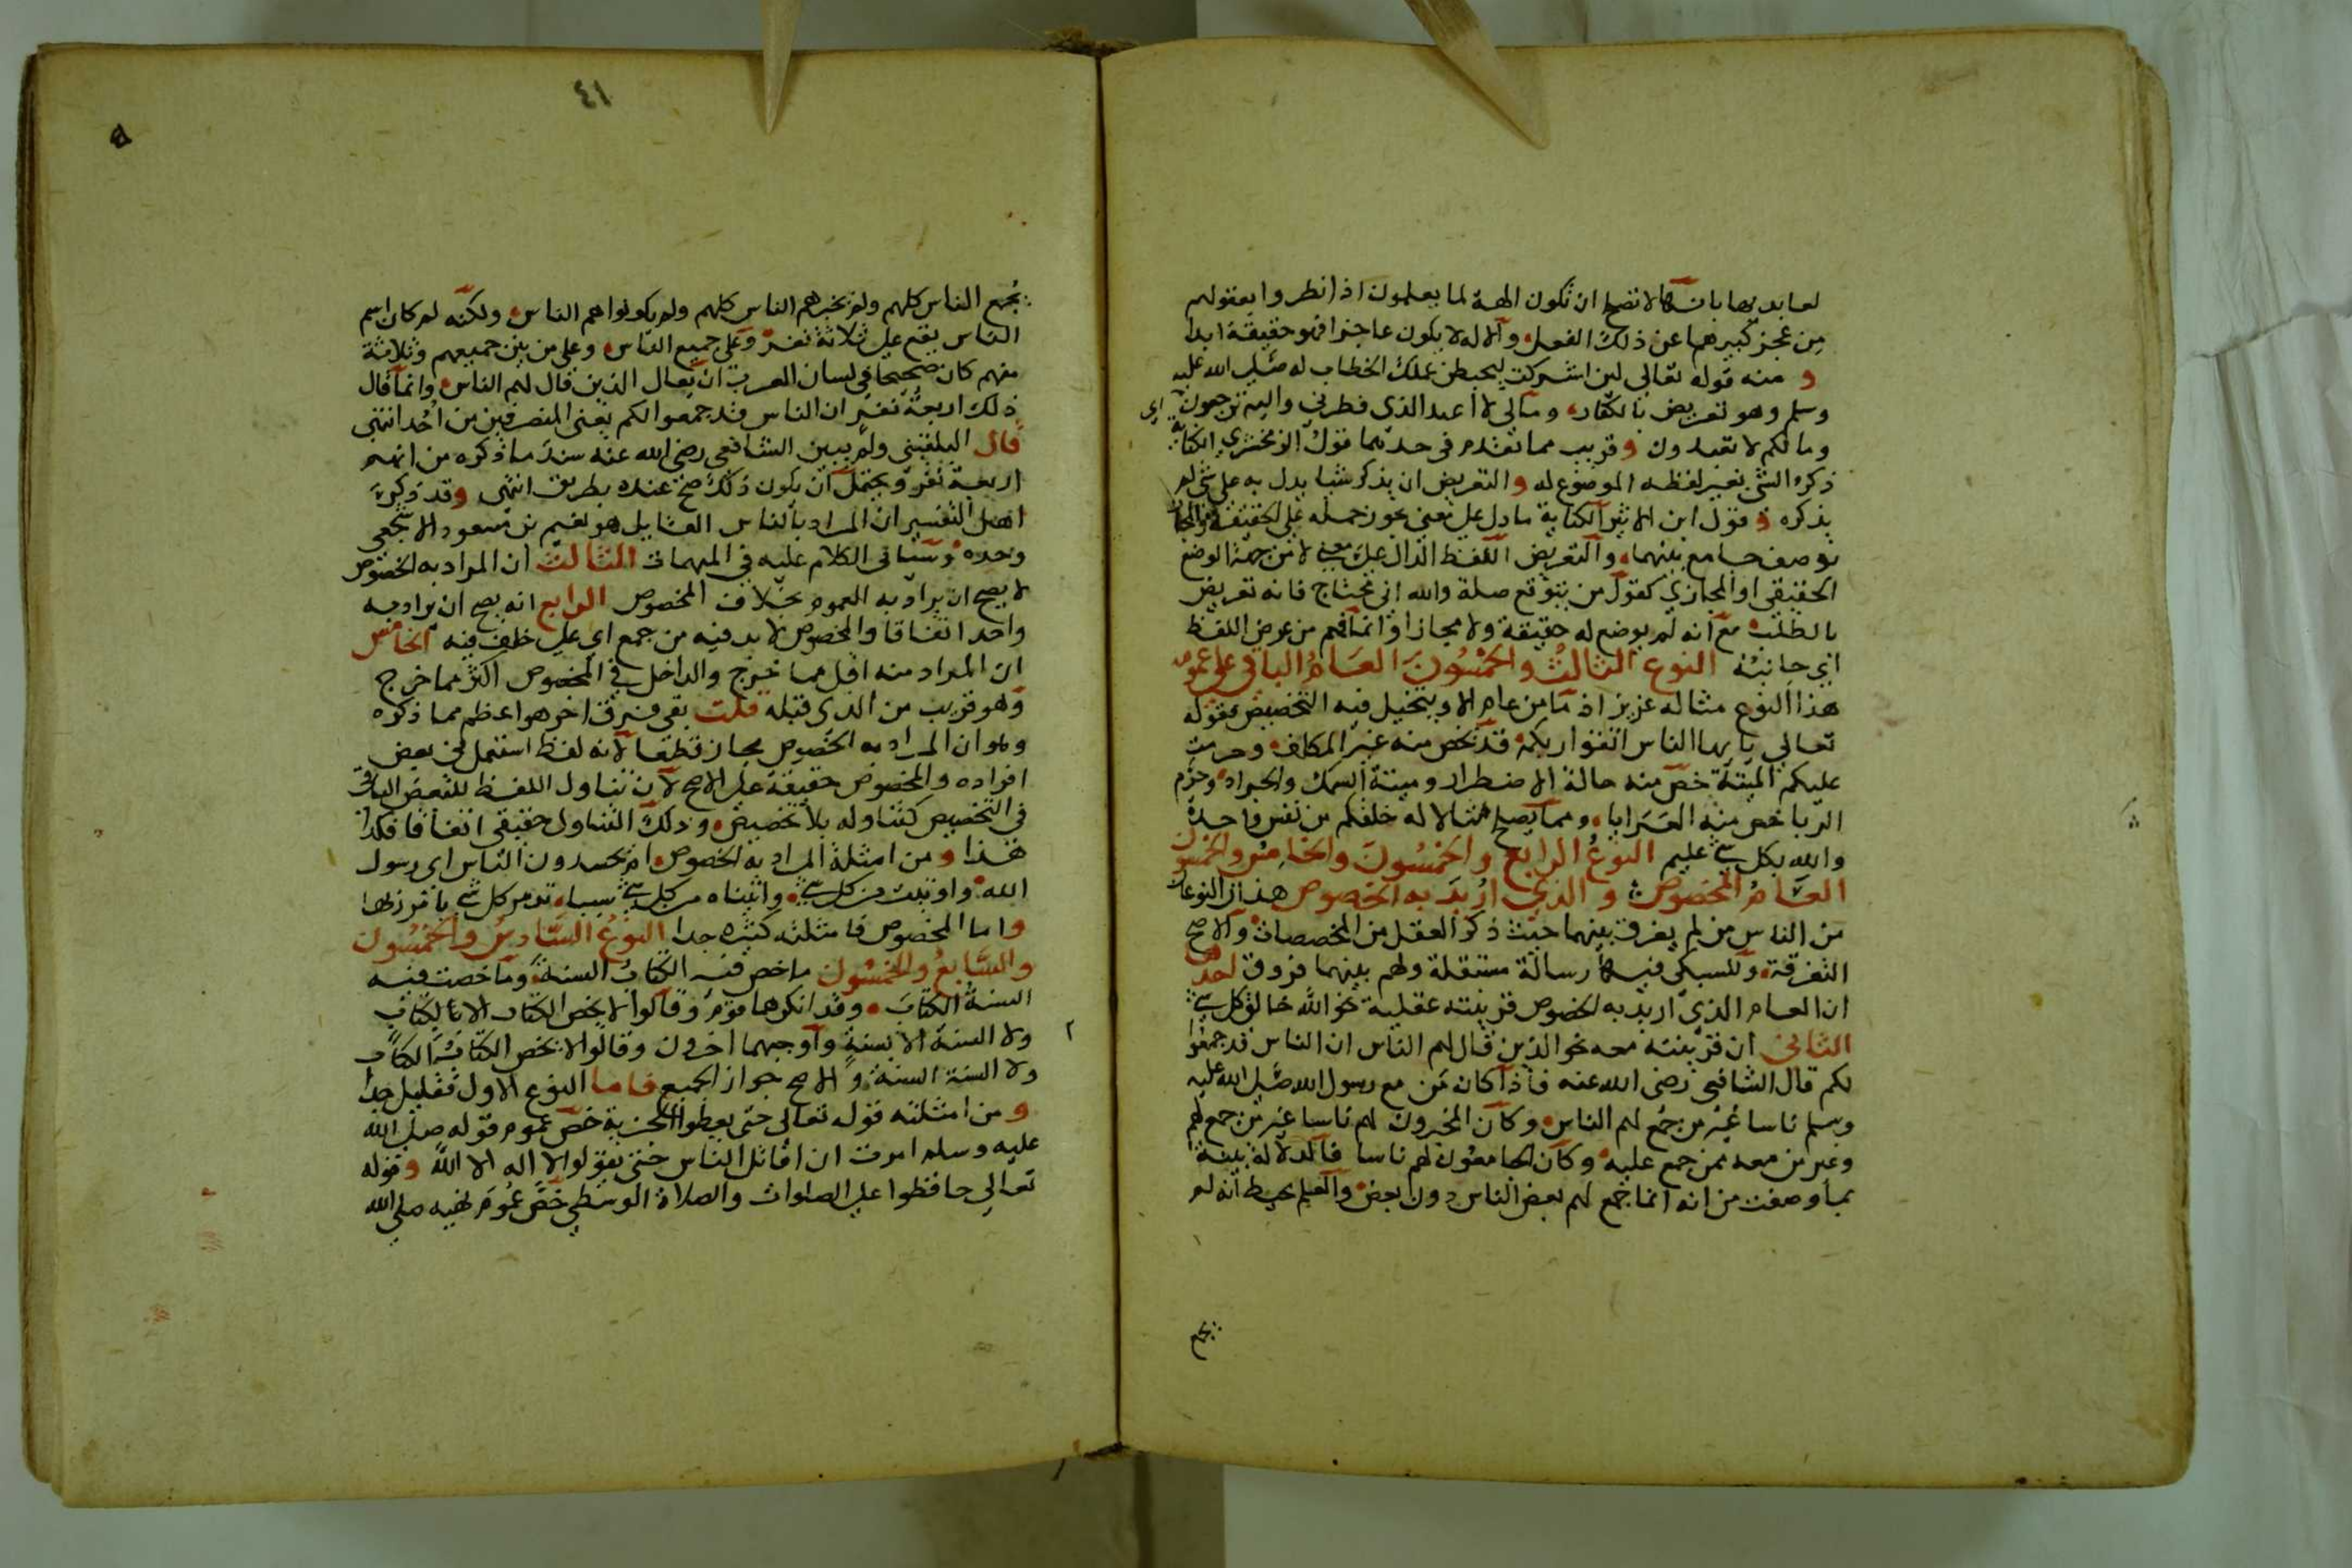 لعابديها بانها لا تصلح ان تكون الهة لما يعلمون اذا نظروا بعقولهم
من عجز كبيرهما عن ذلك الفعل والاله لا يكون عاجزا فهو حقيقة ابدا
و منه قوله تعالى لين اشركت ليحبطن عملك الخطاب له صلى الله عليه
وسلم وهو تعريض بالكفار ومالي لا اعبد الذي فطرني واليه ترجعون اي
وما لكم لا تعبدون وقريب مما تقدم في حديهما قول الزمخشري الكناية
ذكر الشي بغير لفظه الموضوع له والتعريض ان يذكر شيا يدل به على شي لم
يذكره و قول ابن الاثير الكناية ما دل على معنى يجوز حمله على الحقيقة والمجاز
بوصف جامع بينهما والتعريض اللفظ الدال على معنى لا من جهة الوضع
الحقيقي او المجازي كقول من يتوقع صلة والله اني محتاج فانه تعريض
بالطلب مع انه لم يوضع له حقيقة ولا مجازا وانما فهم من عرض اللفظ
اي جانبه النوع الثالث والخمسون العام الباقي على عمومه
هذا النوع مثاله عزيز اذ ما من عام الا ويتخيل فيه التخصيص فقوله
تعالى يا يها الناس اتقوا ربكم قد يخص منه غير المكلف وحرمت
عليكم الميتة خص منه حالة الاضطرار وميتة السمك والجراد وحرم
الربا خص منه العرايا ومما يصلح مثالا له خلقكم من نفس واحدة
والله بكل شي عليم النوع الرابع والخمسون والخامس والخمسون
العام المخصوص والذي اريد به الخصوص هذان النوعان
من الناس من لم يفرق بينهما حيث ذكر العقل من المخصصات والاصح
التفرقة وللسبكي فيها رسالة مستقلة ولهم بينهما فروق احدها
ان العام الذي اريد به الخصوص قرينته عقلية نحو الله خالق كل شي
الثاني ان قرينته معه نحو الذين قال لهم الناس ان الناس قد جمعوا
لكم قال الشافعي رضي الله عنه فاذا كان من مع رسول الله صلى الله عليه
وسلم ناسا غير من جمع لهم الناس وكان المخبرون لهم ناسا غير من جمع لهم
وغير من معه ممن جمع عليه وكان الجامعون لهم ناسا فالدلالة بينة
بما وصفت من انه انما جمع لهم بعض الناس دون بعض والعلم يحيط انه لم
٤١
يجمع الناس كلهم ولم يخبرهم الناس كلهم ولم يكونوا هم الناس ولكنه لم كان اسم
الناس يقع على ثلاثة نفر وعلى جميع الناس وعلى من بين جميعهم وثلاثة
منهم كان صحيحا في لسان العرب ان يقال الذين قال لهم الناس وانما قال
ذلك اربعة نفر ان الناس قد جمعوا لكم يعني المنصرفين من احد انتهى
قال البلقيني ولم يبين الشافعي رضي الله عنه سند ما ذكره من انهم
اربعة نفر ويحتمل ان يكون ذلك صح عنده بطريق انتهى وقد ذكر
اهل التفسير ان المراد بالناس القايل هو نعيم بن مسعود الاشجعي
وحده وسياتي الكلام عليه في المبهمات الثالث ان المراد به الخصوص
لا يصح ان يراد به العموم بخلاف المخصوص الرابع انه يصح ان يراد به
واحد اتفاقا والمخصوص لا بد فيه من جمع اي على خلف فيه الخامس
ان المراد منه اقل مما خرج والداخل في المخصوص اكثر مما خرج
وهو قريب من الذي قبله قلت بقي فرق اخر هو اعظم مما ذكره
وهو ان المراد به الخصوص مجاز قطعا لانه لفظ استعمل في بعض
افراده والمخصوص حقيقة على الاصح لان تناول اللفظ للبعض الباقي
في التخصيص كتناوله بلا تخصيص وذلك التناول حقيقي اتفاقا فكذا
هذا ومن امثلة المراد به الخصوص ام يحسدون الناس اي رسول
الله واوتيت من كل شي واتيناه من كل شي سببا تدمر كل شي بامر ربها
واما المخصوص فامثلته كثيرة جدا النوع السادس والخمسون
والسابع والخمسون ما خص فيه الكتاب السنة وما خصت فيه
السنة الكتاب وقد انكرهما قوم وقالوا لا يخص الكتاب الا بالكتاب
ولا السنة الا بسنة واوجبهما اخرون وقالوا لا يخص الكتاب الكتاب
ولا السنة السنة والاصح جواز الجميع فاما النوع الاول فقليل جدا
ومن امثلته قوله تعالى حتى يعطوا الجزية خص عموم قوله صلى الله
عليه وسلم امرت ان اقاتل الناس حتى يقولوا لا اله الا الله وقوله
تعالى حافظوا على الصلوات والصلاة الوسطى خص عموم نهيه صلى الله